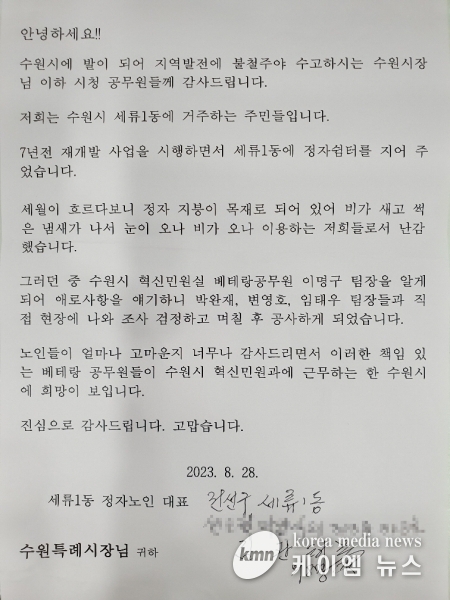 안녕하세요!!
수원시에 발이 되어 지역발전에 불철주야 수고하시는 수원시장
님 이하 시청 공무원들께 감사드립니다.
저희는 수원시 세류1동에 거주하는 주민들입니다.
7년전 재개발 사업을 시행하면서 세류1동에 정자쉼터를 지어 주
었습니다.
세월이 흐르다보니 정자 지붕이 목재로 되어 있어 비가 새고 썩
은 냄새가 나서 눈이 오나 비가 오나 이용하는 저희들로서 난감
했습니다.
그러던 중 수원시 혁신민원실 베테랑공무원 이명구 팀장을 알게
되어 애로사항을 얘기하니 박완재, 변영호, 임태우 팀장들과 직
접 현장에 나와 조사 검정하고 며칠 후 공사하게 되었습니다.
노인들이 얼마나 고마운지 너무나 감사드리면서 이러한 책임 있
는 베테랑 공무원들이 수원시 혁신민원과에 근무하는 한 수원시
에 희망이 보입니다.
진심으로 감사드립니다. 고맙습니다.
2023. 8. 28.
세류1동 정자노인 대표 권선구 세류1동
수원특례시장님 귀하
kmn korea media news
케이엠 뉴스